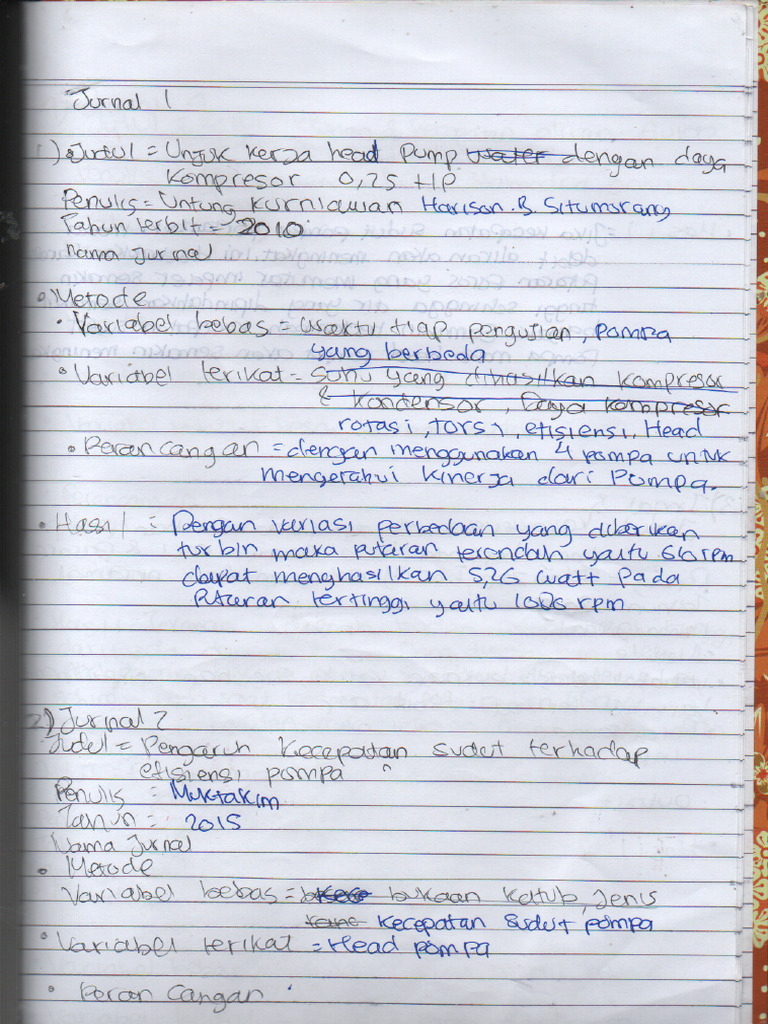 Jurnal 1
1) Judul = Unjuk kerja head pump water dengan daya
kompresor 0,25 HP
Penulis = Untung Kurniawan Harison.B. Situmorang
Tahun terbit = 2010
nama jurnal
Metode
Variabel bebas = waktu tiap pengujian, pompa
yang berbeda
Variabel terikat = suhu yang dihasilkan kompresor
& Kondensor, Daya kompresor
rotasi, torsi, efisiensi, Head
Perancangan = dengan menggunakan 4 pompa untuk
mengetahui kinerja dari Pompa.
Hasil = Dengan variasi perbedaan yang diberikan
turbin maka putaran terendah yaitu rpm
dapat menghasilkan 5,26 watt pada
Putaran tertinggi yaitu rpm
2) Jurnal 2
Judul = Pengaruh Kecepatan sudut terhadap
efisiensi pompa
Penulis = Muktakim
Tahun = 2015
Nama Jurnal
Metode
Variabel bebas = bukaan katub, Jenis
kecepatan sudut pompa
Variabel terikat = Head pompa
Perancangan